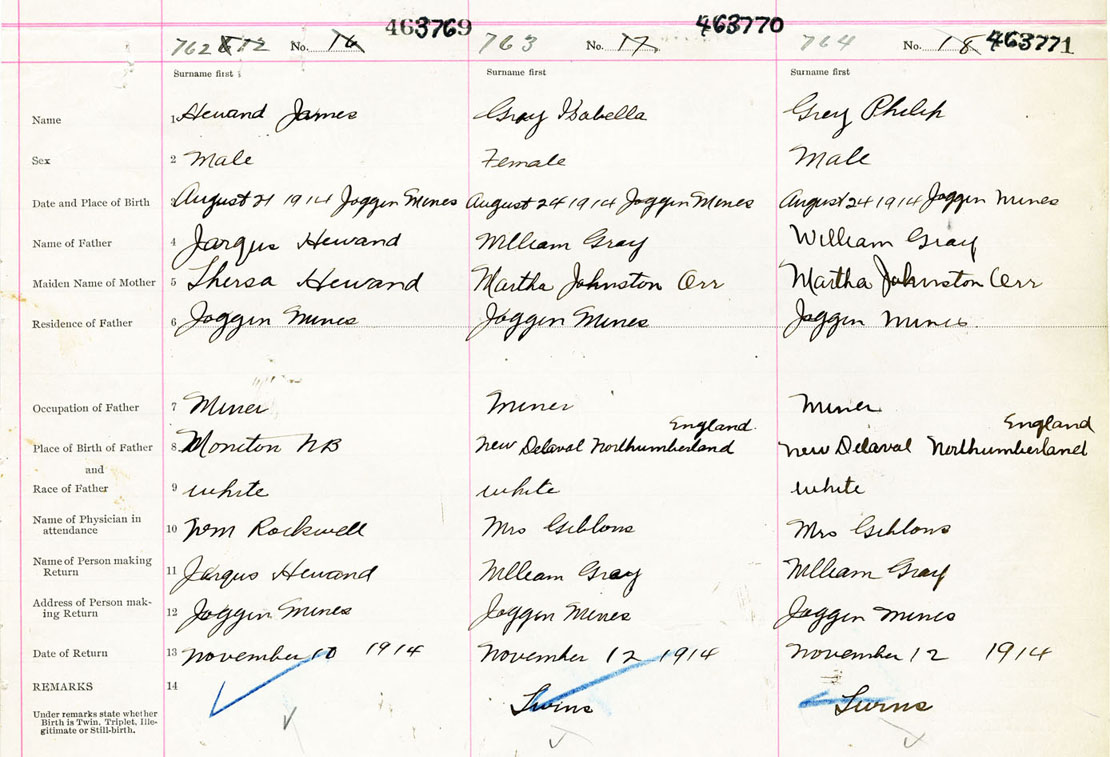 762 812 No. 16 463769 763 No. 17 463770 764 No. 18 463771
Surname first Surname first Surname first
Name 1 Hewand James Gray Isabella Grey Philip
Sex 2 Male Female Male
Date and Place of Birth 3 August 21 1914 Joggin Mines August 24 1914 Joggin Mines August 24 1914 Joggin Mines
Name of Father 4 Jargus Hewand William Gray William Gray
Maiden Name of Mother 5 Thersa Hewand Martha Johnston Orr Martha Johnston Orr
Residence of Father 6 Joggin Mines Joggin Mines Joggin Mines
Occupation of Father 7 Miner Miner Miner
England England
Place of Birth of Father 8 Moncton NB New Delaval Northumberland New Delaval Northumberland
and
Race of Father 9 white white white
Name of Physician in
attendance 10 Wm Rockwell Mrs Gibbons Mrs Gibbons
Name of Person making
Return 11 Jargus Hewand William Gray William Gray
Address of Person mak-
ing Return 12 Joggin Mines Joggin Mines Joggin Mines
Date of Return 13 November 10 1914 November 12 1914 November 12 1914
REMARKS 14
Under remarks state whether
Birth is Twin, Triplet, Ille-
gitimate or Still-birth. Twins Twins